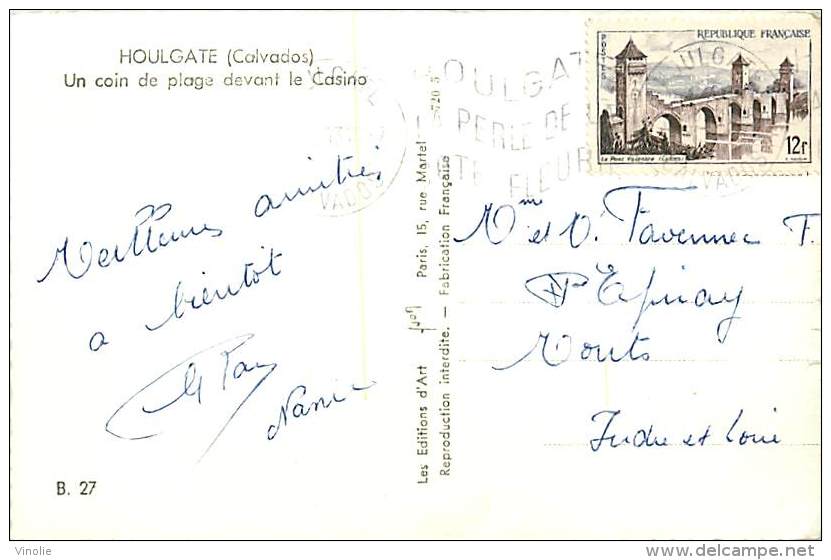 HOULGATE (Calvados)
Un coin de plage devant le Casino
Meilleures amitiés
a bientôt
Nanie
B. 27
Les Editions d'Art Yvon Paris, 15, rue Martel
Reproduction interdite. — Fabrication Française
HOULGATE
PERLE DE LA
CÔTE FLEURIE
REPUBLIQUE FRANÇAISE
POSTES
12f
Le Pont Valentré (Cahors)
CALVADOS
Mme et O. Tavernier F.
Epinay
Monts
Indre et Loire
Vinolie
www.delcampe.net